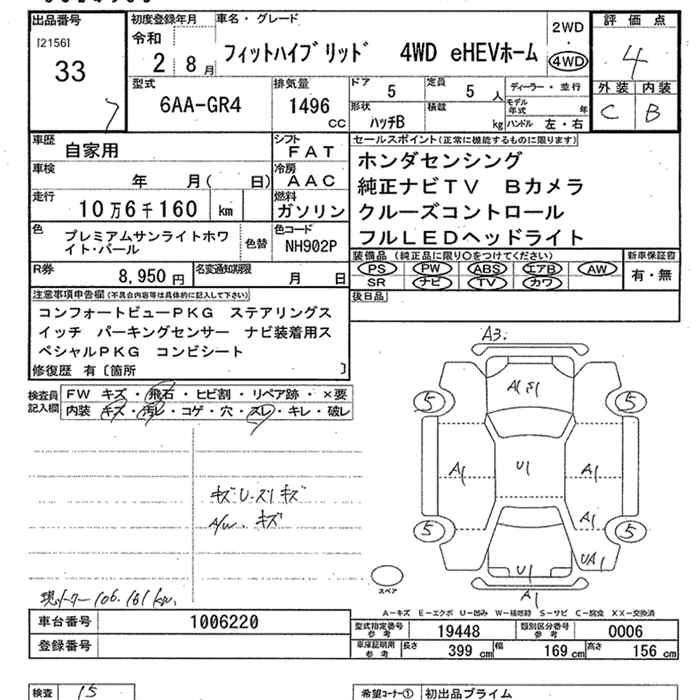 出品番号
[2156]
33
7
初度登録年月
令和
2 8月
車名・グレード
フィットハイブリッド 4WD eHEVホーム
2WD
・
4WD
評価点
4
外装 内装
C B
型式
6AA-GR4
排気量
1496
CC
ドア
5
定員
5 人
ディーラー・並行
形状
ハッチB
積載
kg
モデル年式 年
ハンドル 左・右
車歴
自家用
シフト
FAT
車検
年 月( 日)
冷房
AAC
走行
10万6千160 km
燃料
ガソリン
色
プレミアムサンライトホワイト・パール
色替
色コード
NH902P
R券
8,950円
名変通知期限
月 日
セールスポイント(正常に機能するものに限ります)
ホンダセンシング
純正ナビTV Bカメラ
クルーズコントロール
フルLEDヘッドライト
装備品 (純正品に限り○をつけてください)
PS PW ABS エアB AW
SR ナビ TV カワ
新車保証書
有・無
後日品
注意事項申告欄(不具合内容等は具体的に記入して下さい)
コンフォートビューPKG ステアリングス
イッチ パーキングセンサー ナビ装着用ス
ペシャルPKG コンビシート
修復歴 有〔箇所 〕
検査員
記入欄
FW キズ・飛石・ヒビ割・リペア跡・×要
内装 キズ・汚レ・コゲ・穴・スレ・キレ・破レ
キズU.スリキズ
A/W. キズ
現メーター 106.161km.
A3.
A1
5 5
A1 U1 A1
A1
5 5
U1 UA1
A1
スペア
A-キズ E-エクボ U-凹み W-補修跡 S-サビ C-腐食 XX-交換済
車台番号
1006220
登録番号
型式指定番号
参考
19448
類別区分番号
参考
0006
車庫証明用
参考
長さ 399 cm 幅 169 cm 高さ 156 cm
検査 15
希望コーナー① 初出品プライム